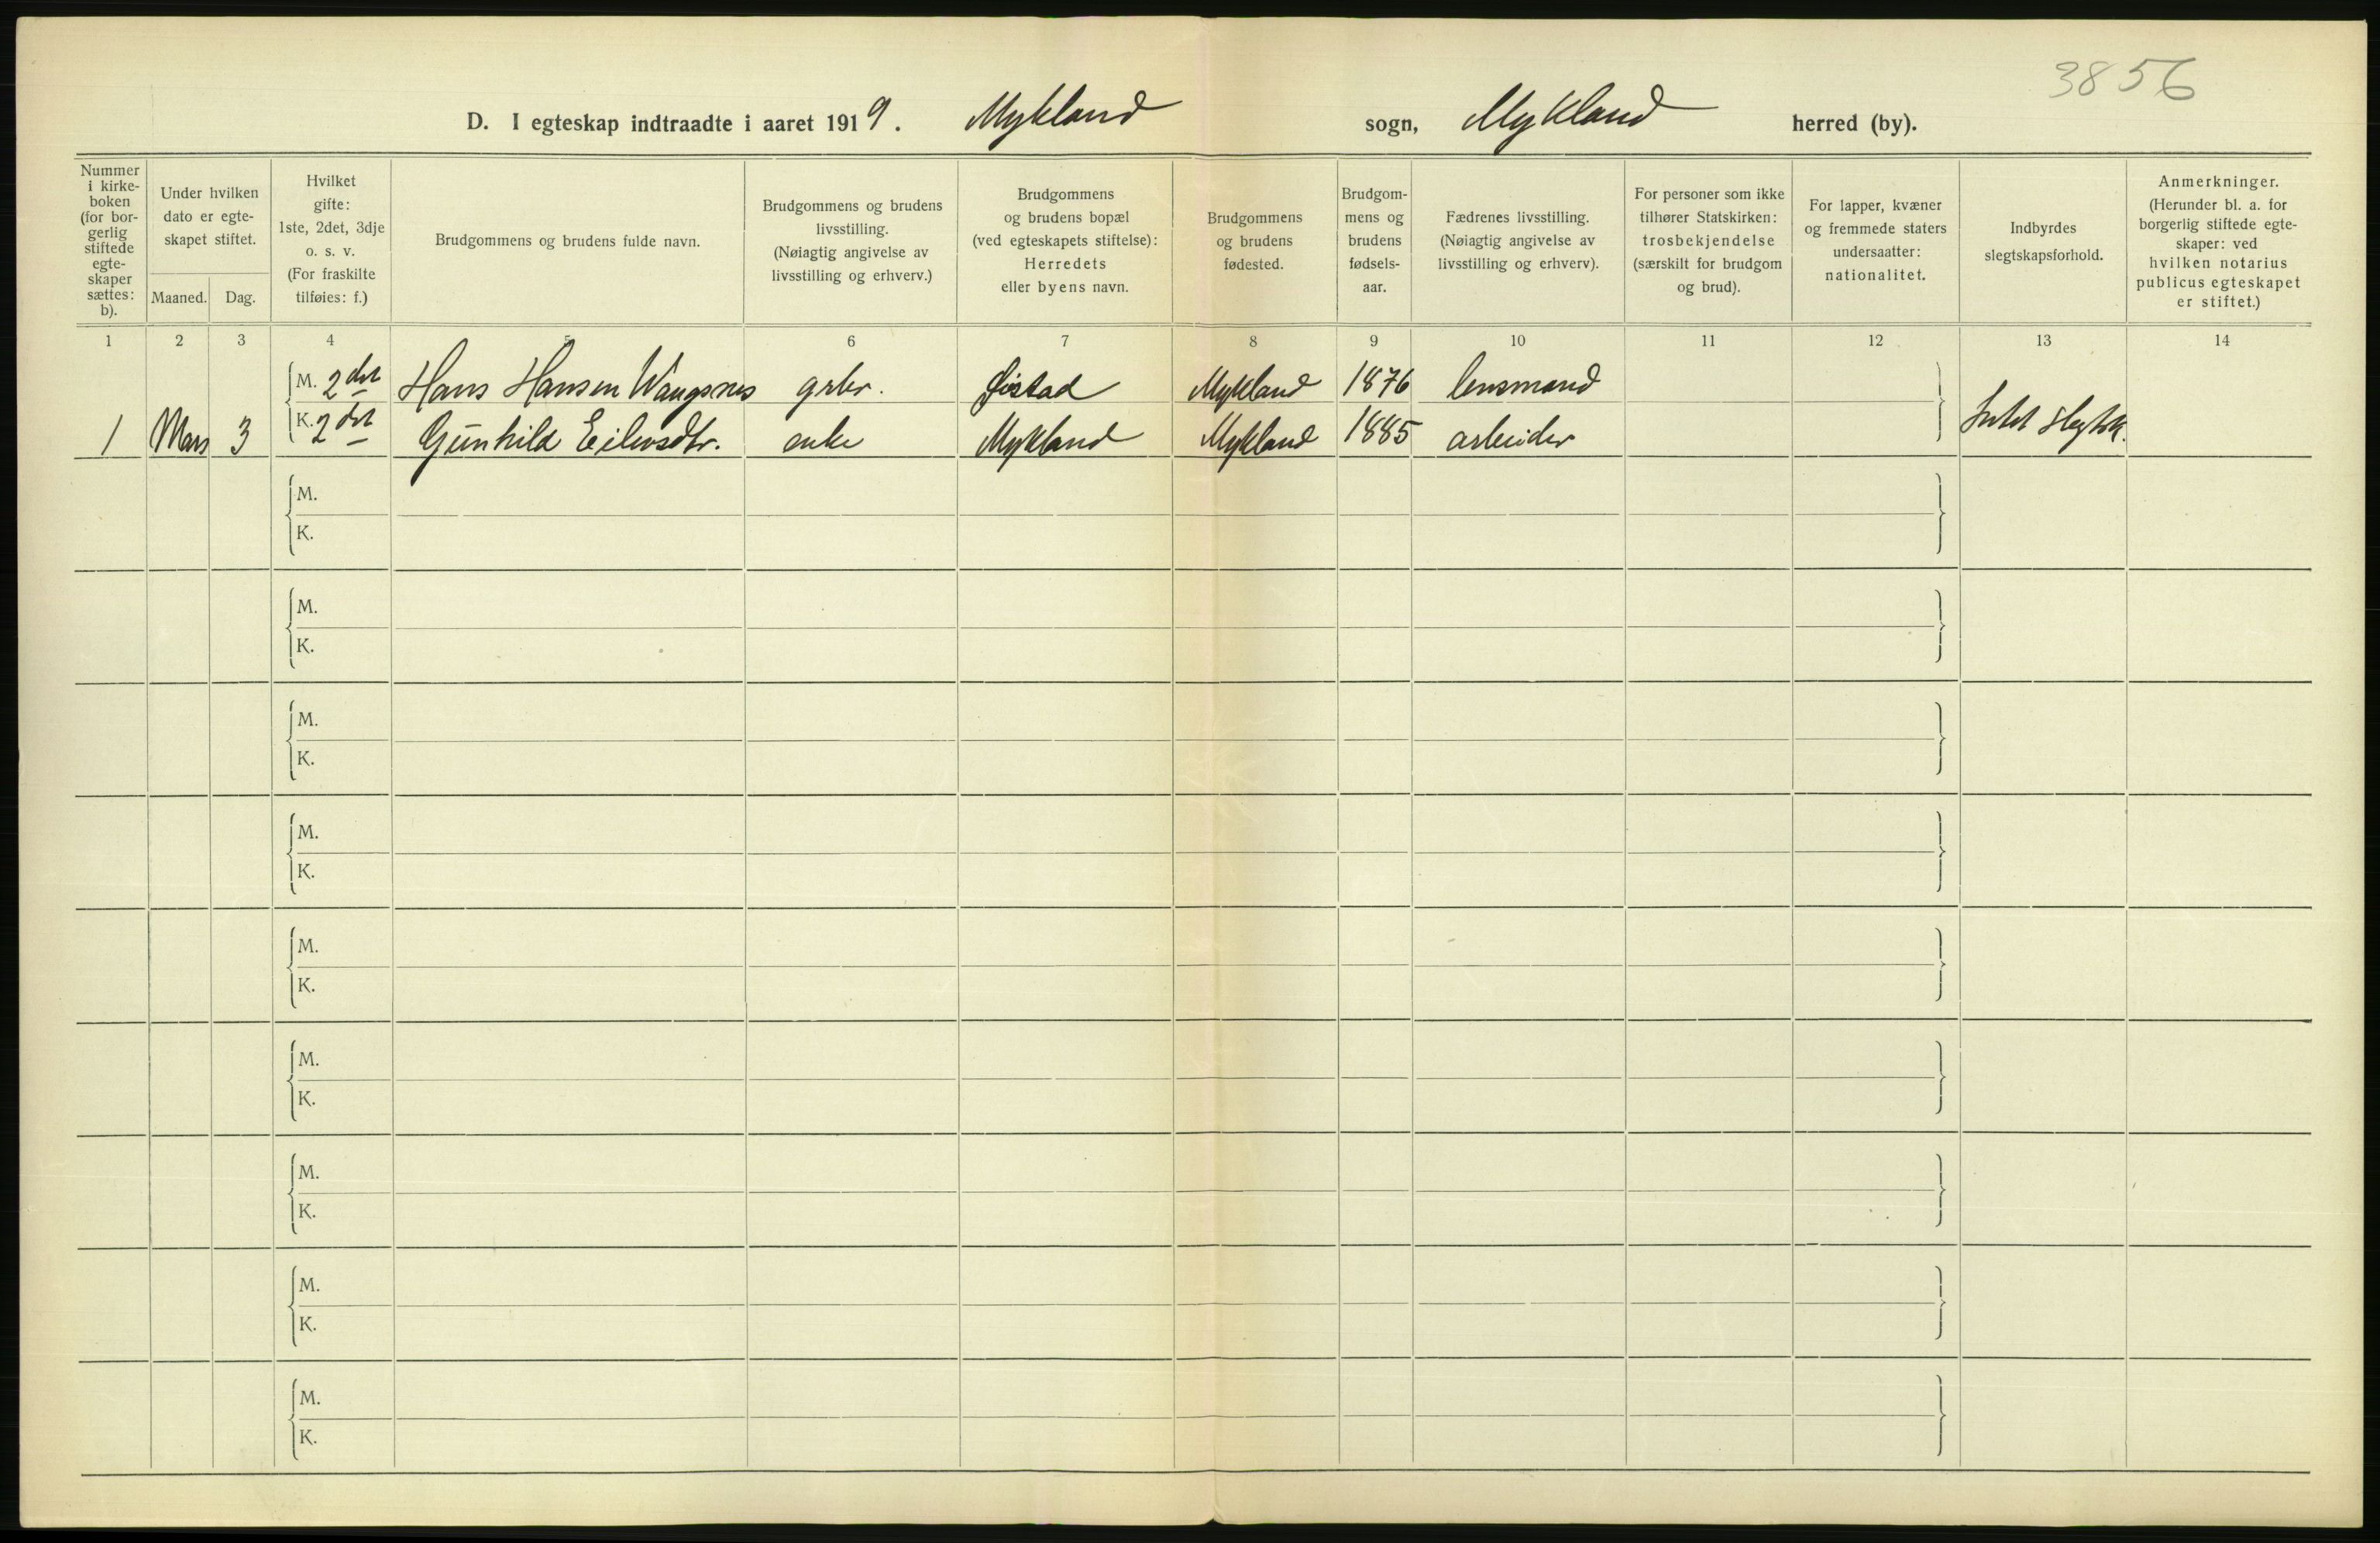 3856
D. I egteskap indtraadte i aaret 1919. Mykland sogn, Mykland herred (by).
Nummer
i kirke-
boken
(for bor-
gerlig
stiftede
egte-
skaper
sættes:
b).
Under hvilken
dato er egte-
skapet stiftet.
Maaned. Dag.
Hvilket
gifte:
1ste, 2det, 3dje
o. s. v.
(For fraskilte
tilføies: f.)
Brudgommens og brudens fulde navn.
Brudgommens og brudens
livsstilling.
(Nøiagtig angivelse av
livsstilling og erhverv.)
Brudgommens
og brudens bopæl
(ved egteskapets stiftelse):
Herredets
eller byens navn.
Brudgommens
og brudens
fødested.
Brudgom-
mens og
brudens
fødsels-
aar.
Fædrenes livsstilling.
(Nøiagtig angivelse av
livsstilling og erhverv).
For personer som ikke
tilhører Statskirken:
trosbekjendelse
(særskilt for brudgom
og brud).
For lapper, kvæner
og fremmede staters
undersaatter:
nationalitet.
Indbyrdes
slegtskapsforhold.
Anmerkninger.
(Herunder bl. a. for
borgerlig stiftede egte-
skaper: ved
hvilken notarius
publicus egteskapet
er stiftet.)
1 2 3 4 5 6 7 8 9 10 11 12 13 14
M. 2det Hans Hansen Waugsnes grbr. Øistad Mykland 1876 lensmand
1 Mars 3 K. 2det Gunhild Eilevsdtr. enke Mykland Mykland 1885 arbeider Intet slegtsk.
M.
K.
M.
K.
M.
K.
M.
K.
M.
K.
M.
K.
M.
K.
M.
K.
M.
K.